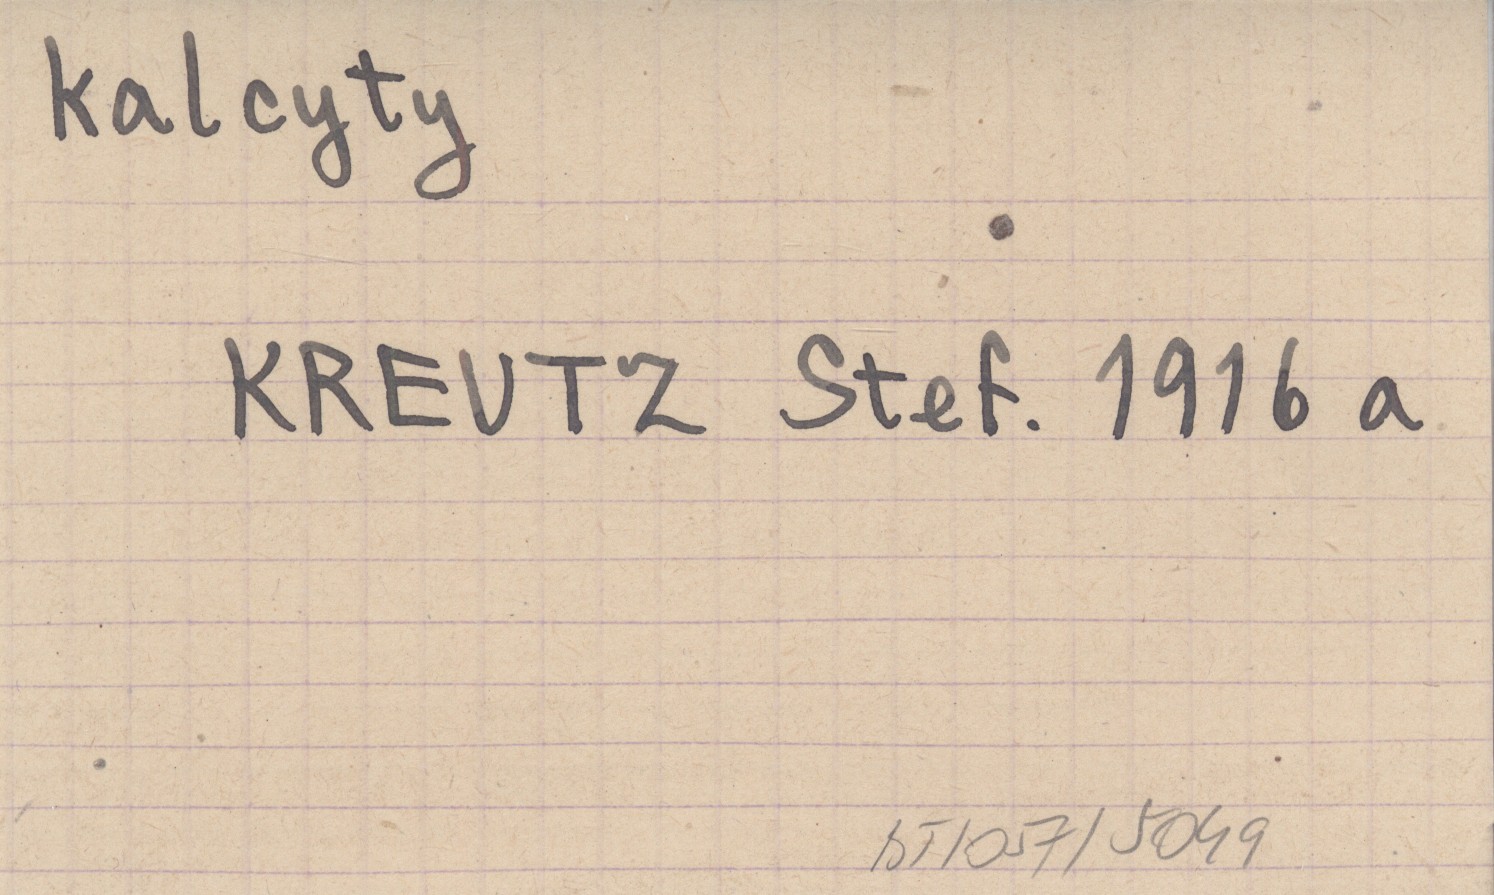 kalcyty
KREUTZ Stef. 1916 a
bI/057/5049